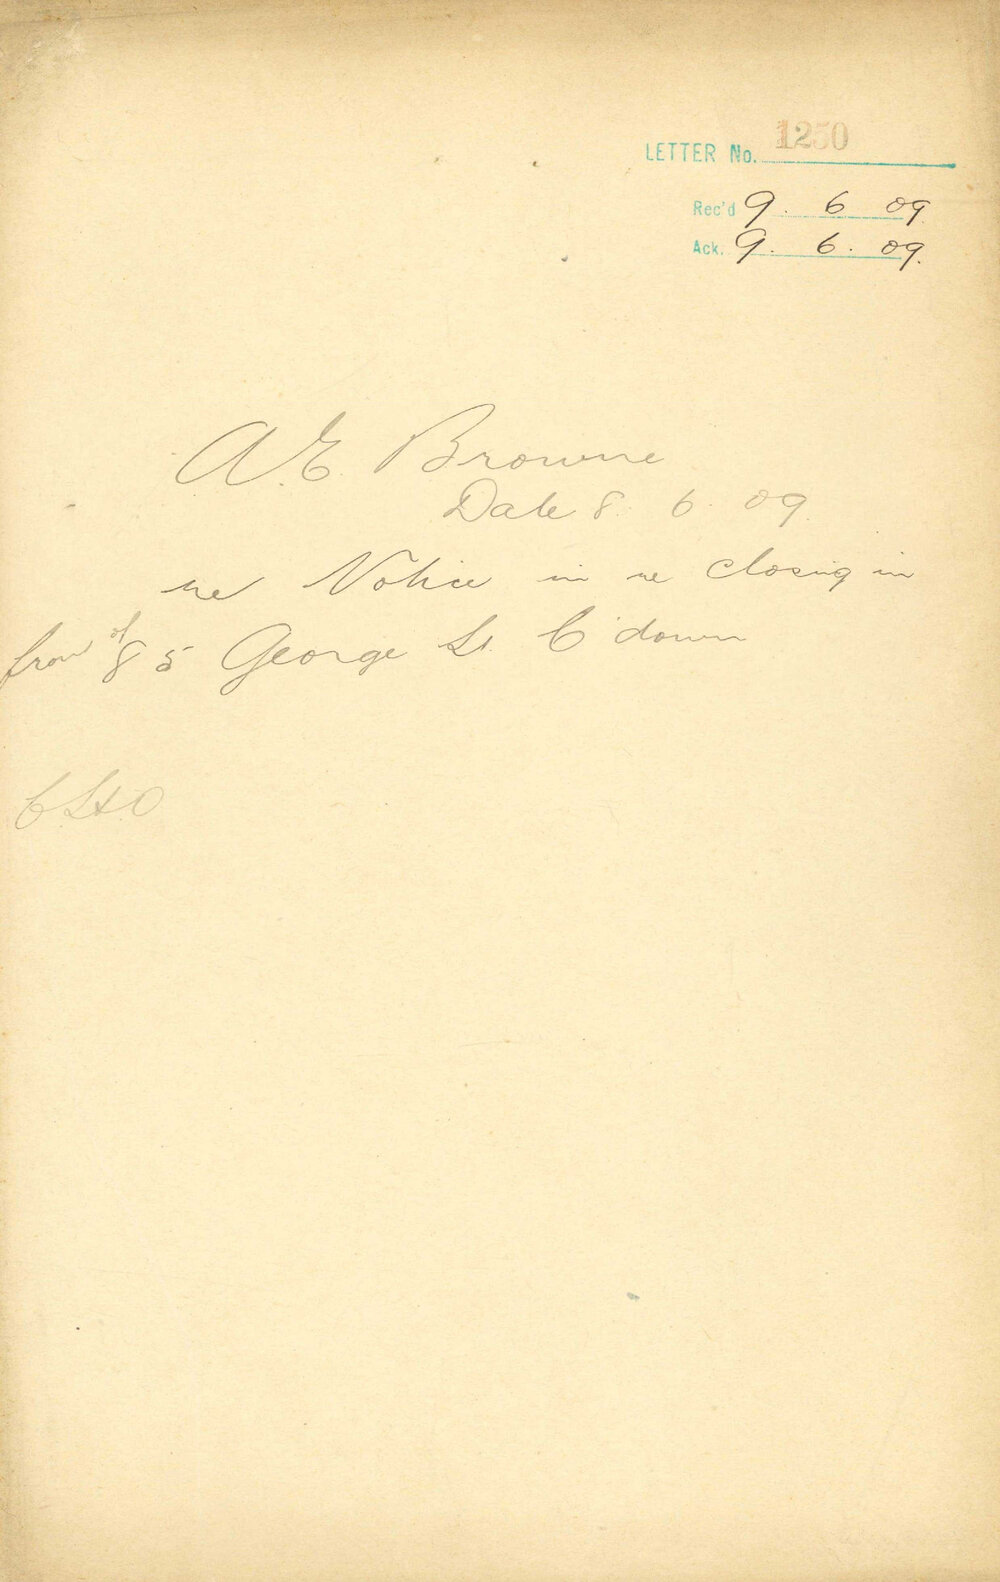 LETTER No. 1250
Rec'd 9. 6 09.
Ack. 9. 6. 09.
A.E. Browne
Date 8. 6. 09.
re Notice in re closing in
of
85 George St. C'down